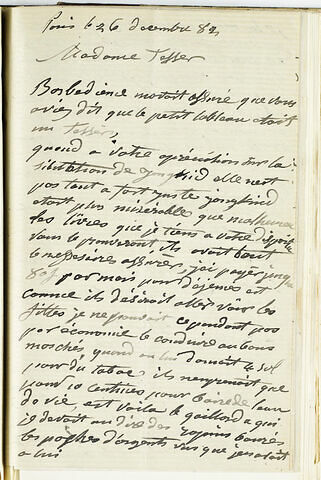 Paris le 26 decembre 82
Madame Tesser
Barbedience motait assuré que vous
aviez dit que le petit tableau etait
un Tesser,
quand a votre apréciation sur la
situation de Jongkind elle nest
pas tout a fait juste jongkind
etait plus miserable que
les livres que je tiens a votre
vous le prouveront ils avait tout
le nessesaire assurer, jai payer
par mois pour dejeuner et
comme ils désirait aller voir les
filles je ne pouvait cependant pas
par économie le conduire au bons
marchés, quand on lui donnait le sol
pour du tabac, ils nenprenait que
pour 10 centimes pour boire de leau
de vie, est voila le gaillard a qui
je devait au dire des bourés
les poches d'argents vus que jen
a lui